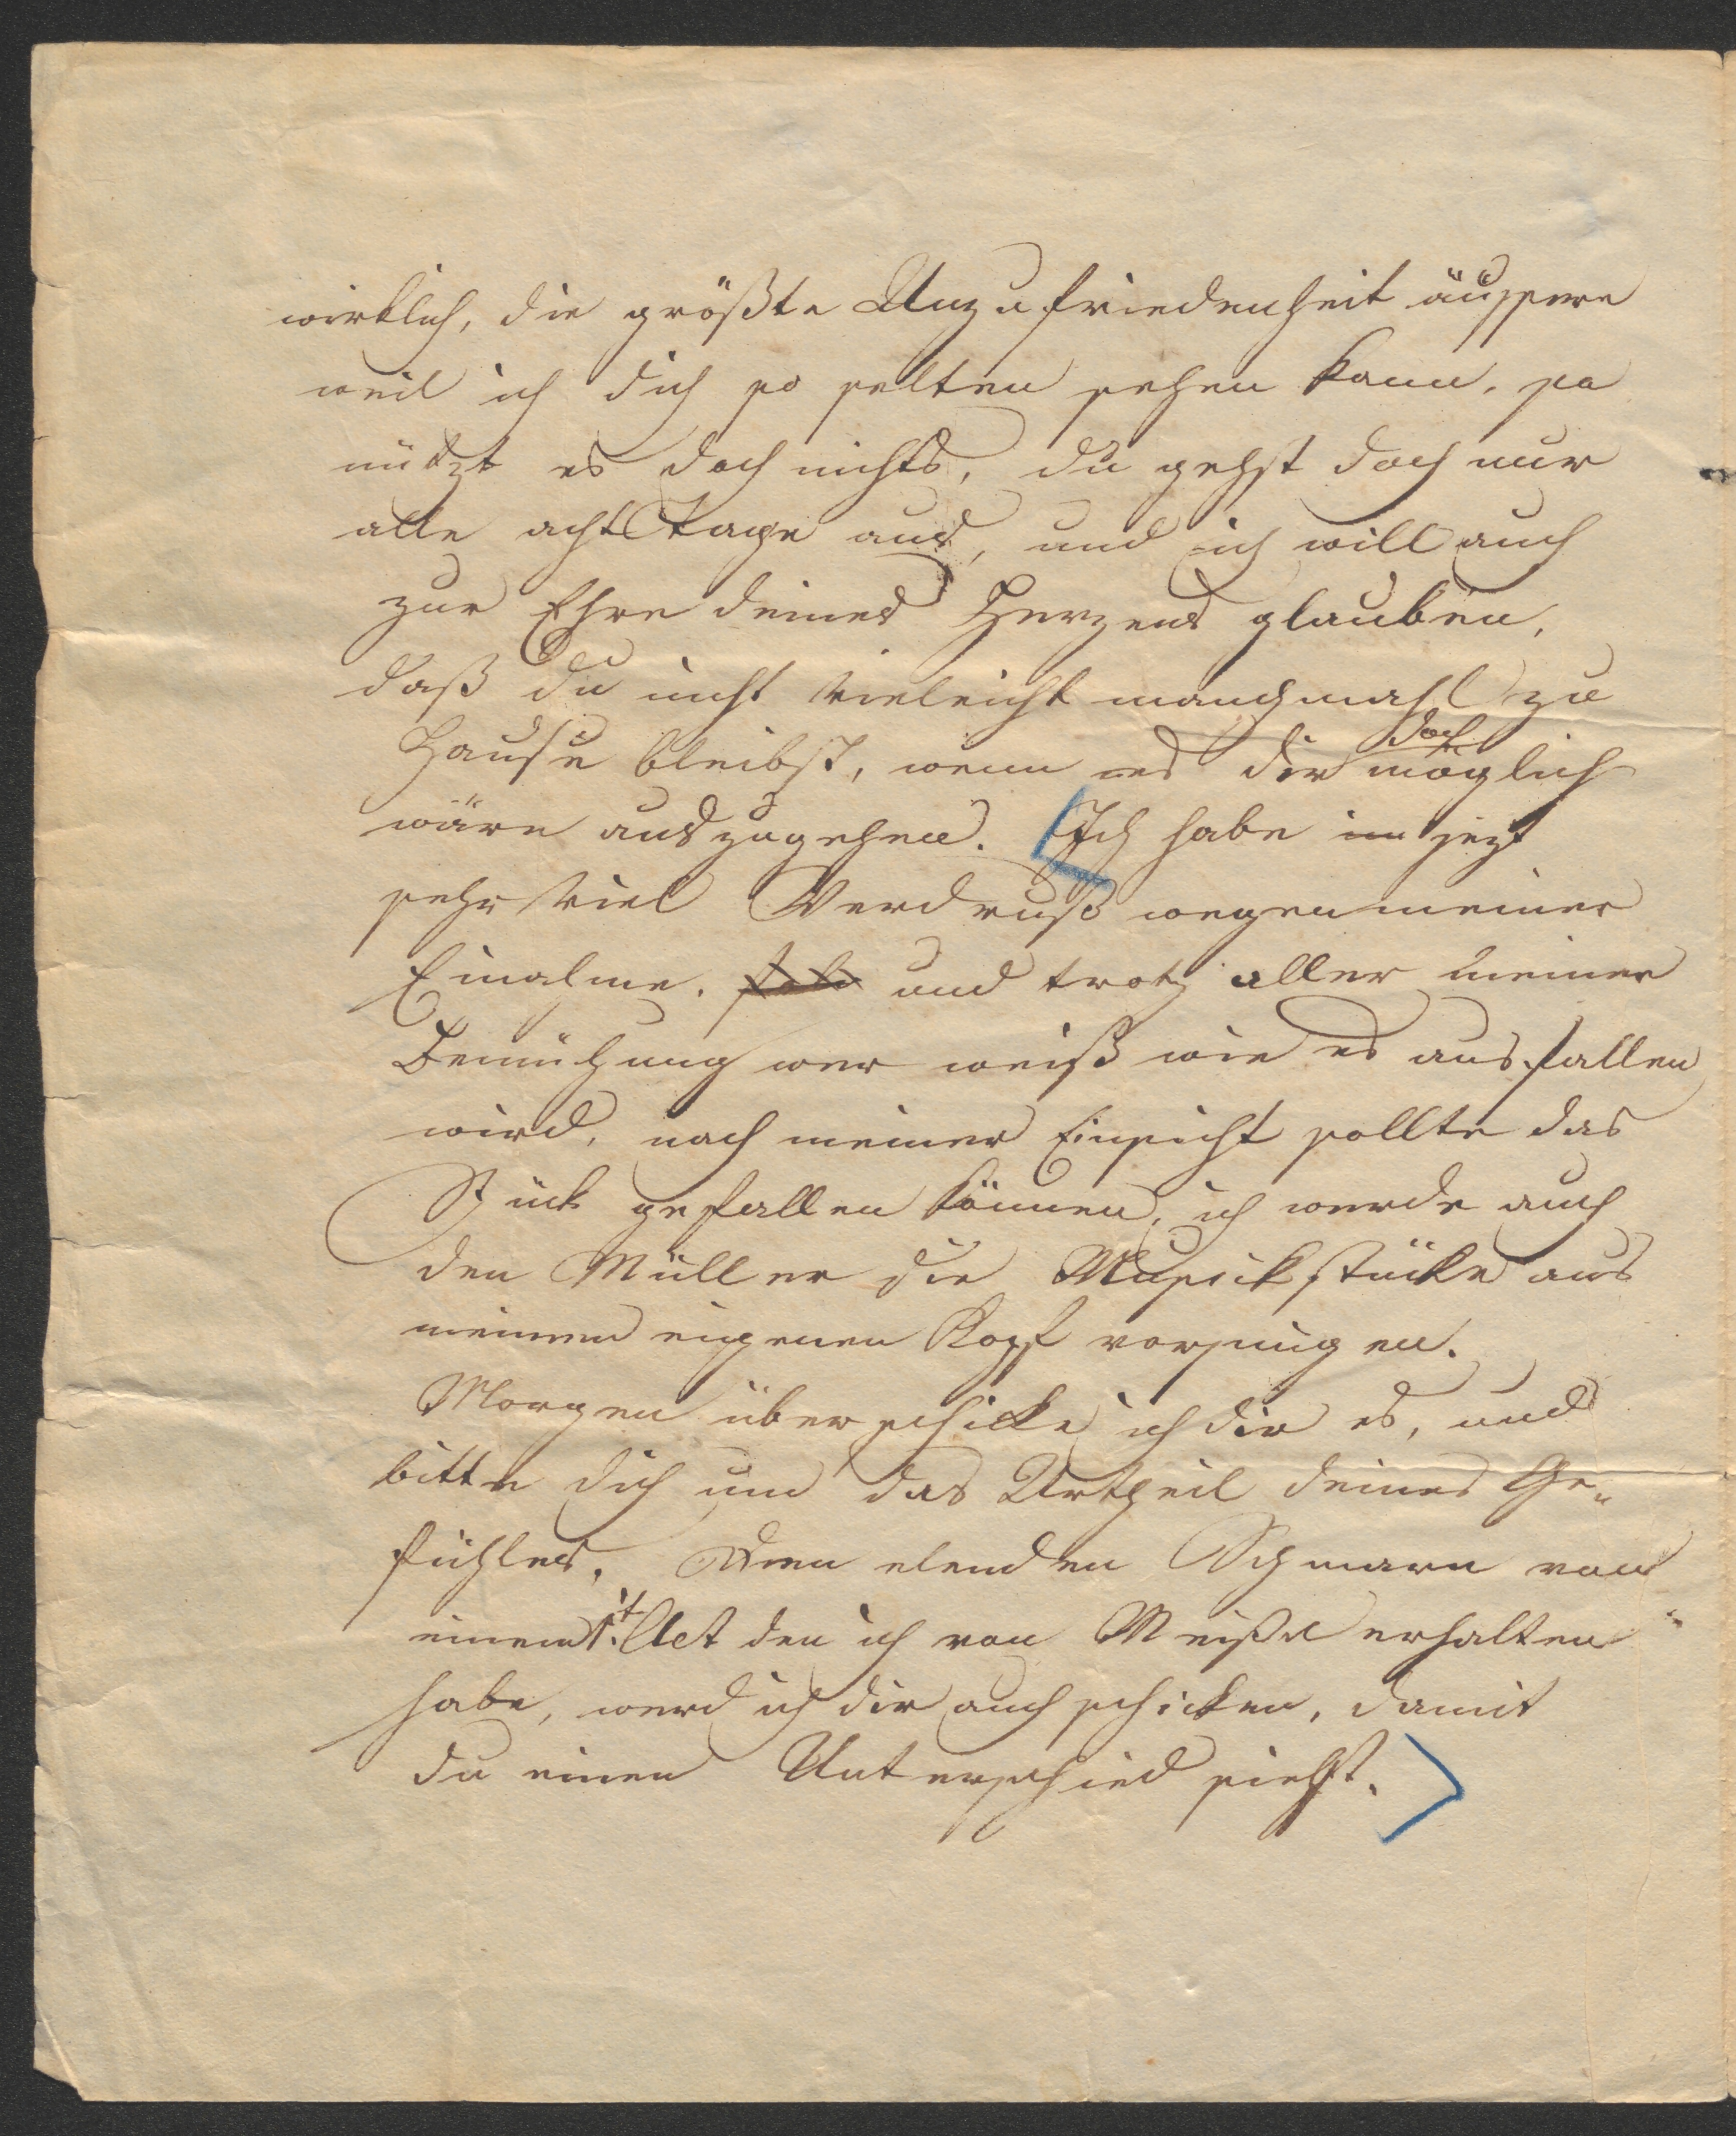 wirklich, die größte Unzufriedenheit äussere
weil ich dich so selten sehen kann, so
nützt es doch nichts, du gehst doch nur
alle acht Tage aus, und ich will auch
zur Ehre deines Herzens glauben,
daß du nicht vieleicht manchmahl zu
Hause bleibst, wenn es dir doch möglich
wäre auszugehen. Ich habe jezt
sehr viel Verdruß wegen meiner
Einahme. und trotz aller meiner
Bemühung wer weiß wie es ausfallen
wird, nach meiner Einsicht sollte das
Stück gefallen können, ich werde auch
den Müller die Musickstücke aus
meinem eigenen Kopf vorsingen.
Morgen überschicke ich dir es, und
bitte dich um das Urtheil deines Ge-
fühles. Den elenden Schmarn von
einem 1t. Act den ich von Meisl erhalten
habe, werd ich dir auch schicken, damit
du einen Unterschied siehst.